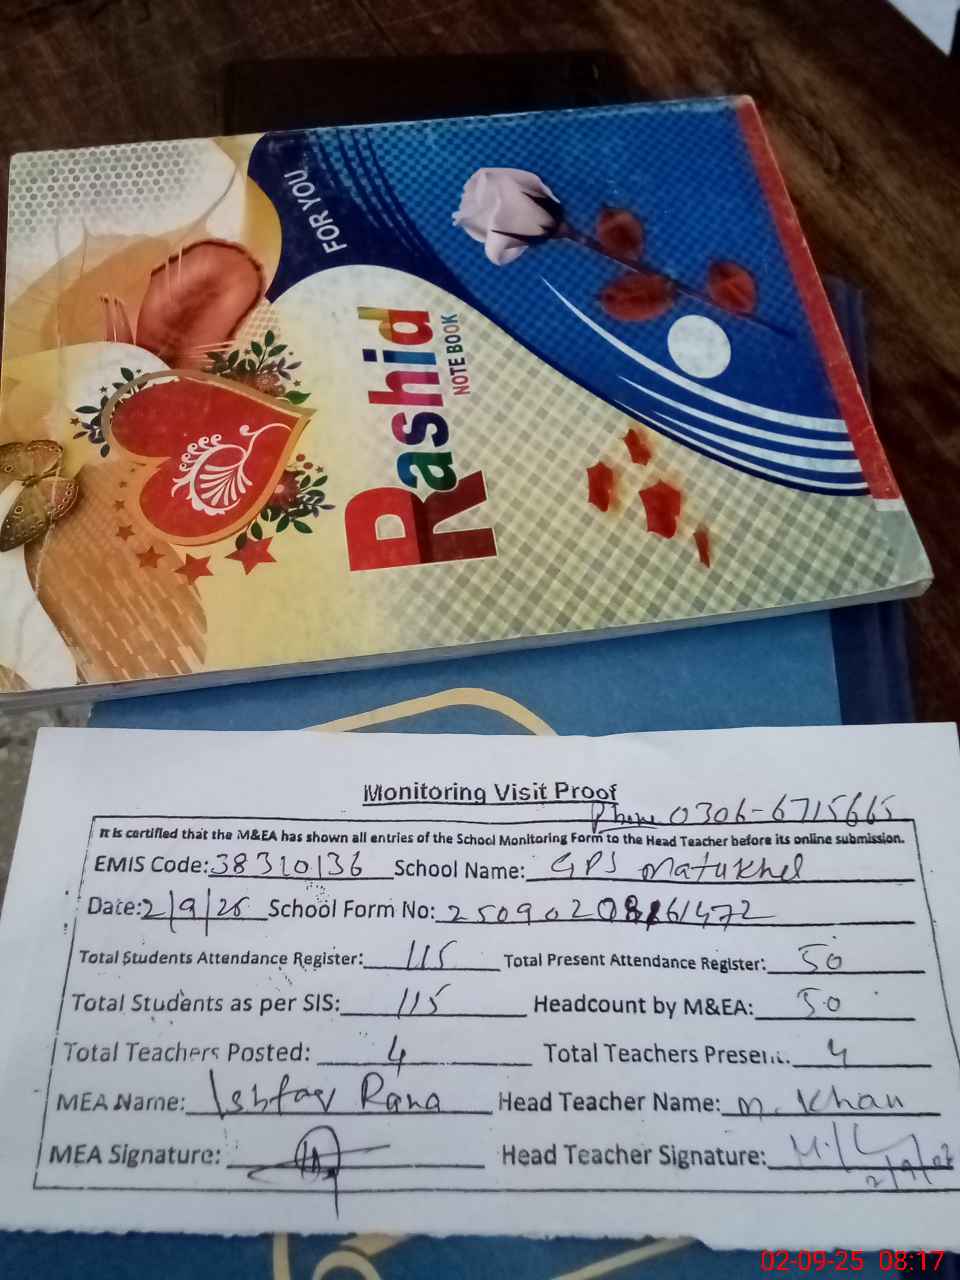 FOR YOU...
Rashid
NOTE BOOK
Monitoring Visit Proof
Phone 0306-6715665
It is certified that the M&EA has shown all entries of the School Monitoring Form to the Head Teacher before its online submission.
EMIS Code: 38310136 School Name: GPS Matukhel
Date: 2/9/25 School Form No:
Total Students Attendance Register: 115 Total Present Attendance Register: 50
Total Students as per SIS: 115 Headcount by M&EA: 50
Total Teachers Posted: 4 Total Teachers Present: 4
MEA Name: Ishfaq Rana Head Teacher Name: M. Khan
MEA Signature: Head Teacher Signature:
02-09-25 08:17